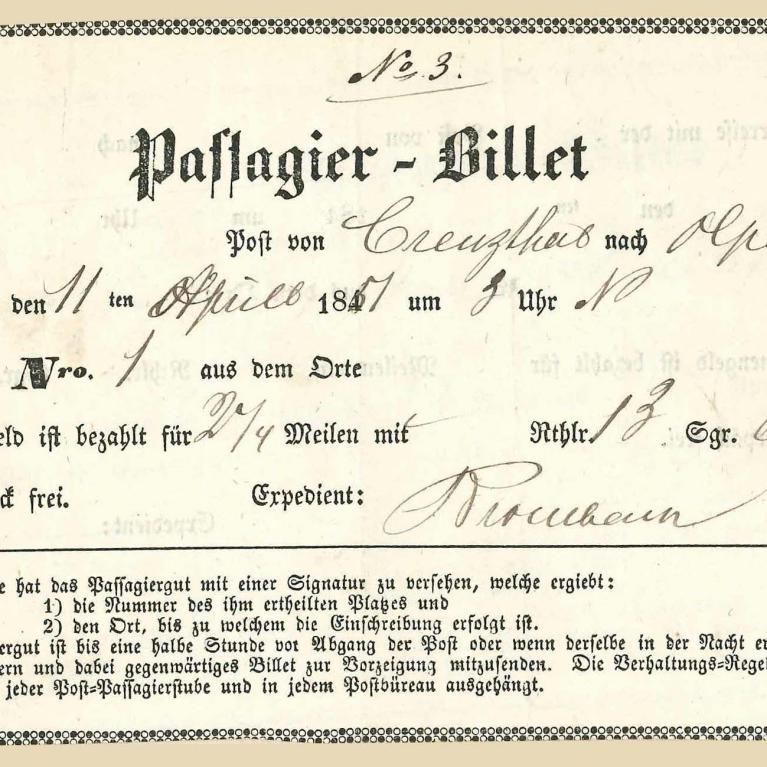 No. 3.
Passagier - Billet
Post von Creuzthal nach Olp
den 11 ten April 1851 um 3 Uhr N
Nro. 1 aus dem Orte
eld ist bezahlt für 2 1/4 Meilen mit Rthlr. 13 Sgr.
ck frei. Expedient:
e hat das Passagiergut mit einer Signatur zu versehen, welche ergiebt:
1) die Nummer des ihm ertheilten Platzes und
2) den Ort, bis zu welchem die Einschreibung erfolgt ist.
ergut ist bis eine halbe Stunde vor Abgang der Post oder wenn derselbe in der Nacht er
ern und dabei gegenwärtiges Billet zur Vorzeigung mitzusenden. Die Verhaltungs=Rege
jeder Post=Passagierstube und in jedem Postbüreau ausgehängt.